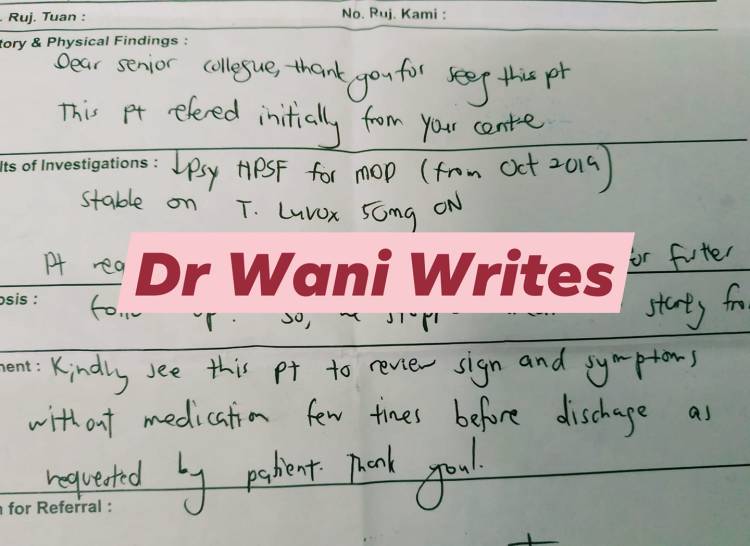 . Ruj. Tuan : No. Ruj. Kami :
tory & Physical Findings :
Dear senior collegue, thank you for seeg this pt
This pt refered initially from your centre
lts of Investigations : ↓Psy HPSF for MOD (from Oct 2019)
Stable on T. Luvox 50mg ON
Pt for futter
Dr Wani Writes
osis : up. So, startg fro
ment : Kindly see this pt to review sign and symptoms
without medication few times before dischage as
requested by patient. Thank you!.
n for Referral :